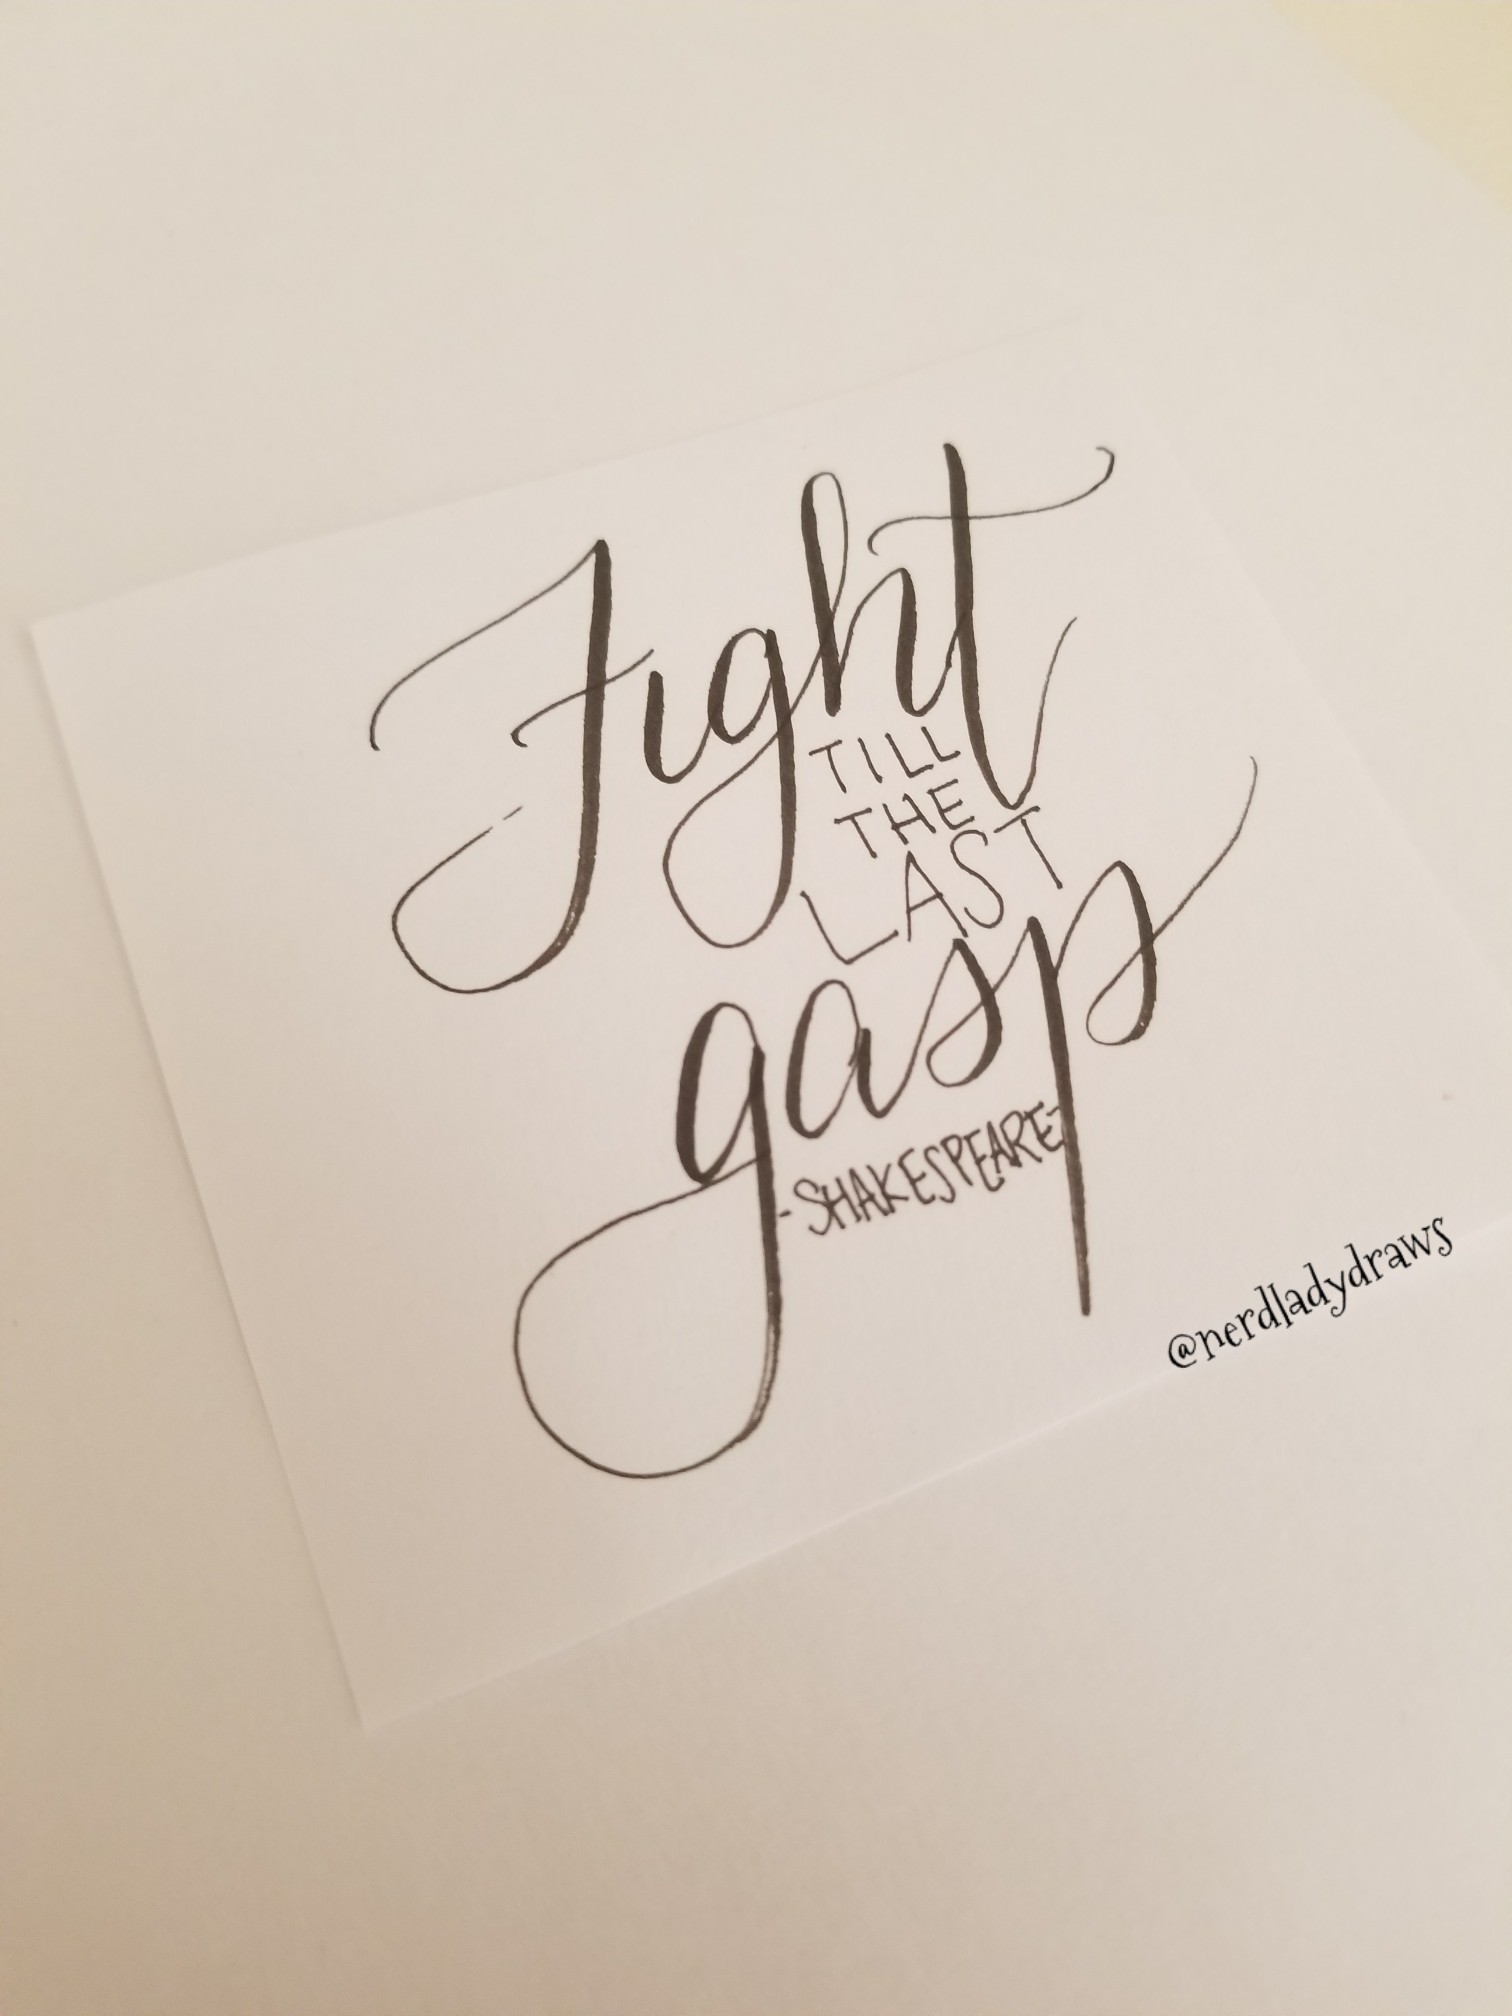 Fight
TILL
THE
LAST
gasp
-SHAKESPEARE-
@nerdladydraws